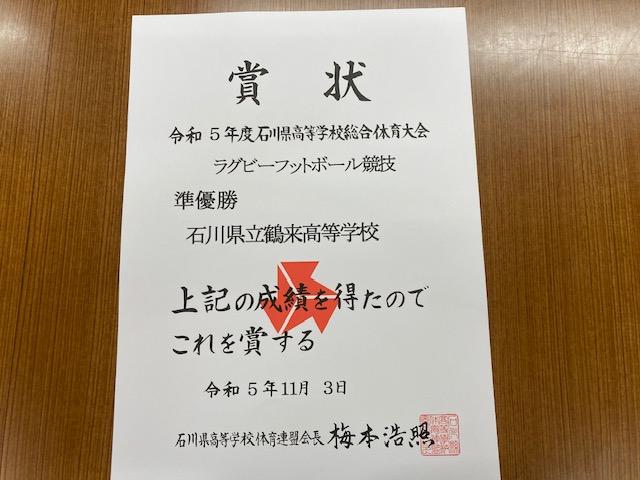 賞 状
令和5年度石川県高等学校総合体育大会
ラグビーフットボール競技
準優勝
石川県立鶴来高等学校
上記の成績を得たので
これを賞する
令和5年11月3日
石川県高等学校体育連盟会長 梅本浩照